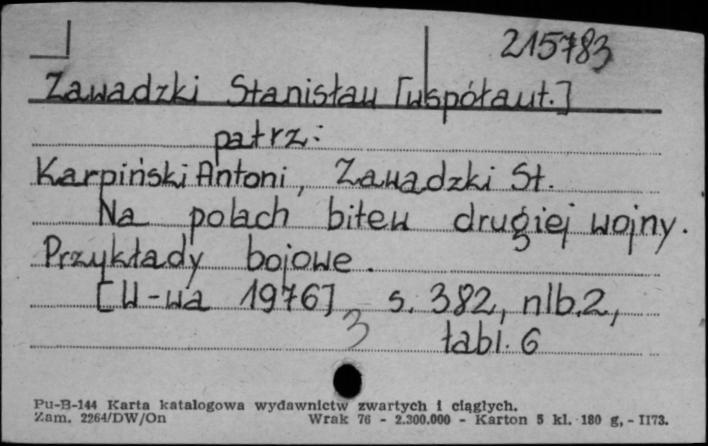 215783
Zawadzki Stanisław [współaut.]
patrz:
Karpiński Antoni, Zawadzki St.
Na polach bitew drugiej wojny.
Przykłady bojowe.
[W-wa 1976], s. 382, nlb.2,
3 tabl. 6
Pu-B-144 Karta katalogowa wydawnictw zwartych i ciągłych.
Zam. 2264/DW/On Wrak 76 - 2.300.000 - Karton 5 kl. 180 g, - II73.